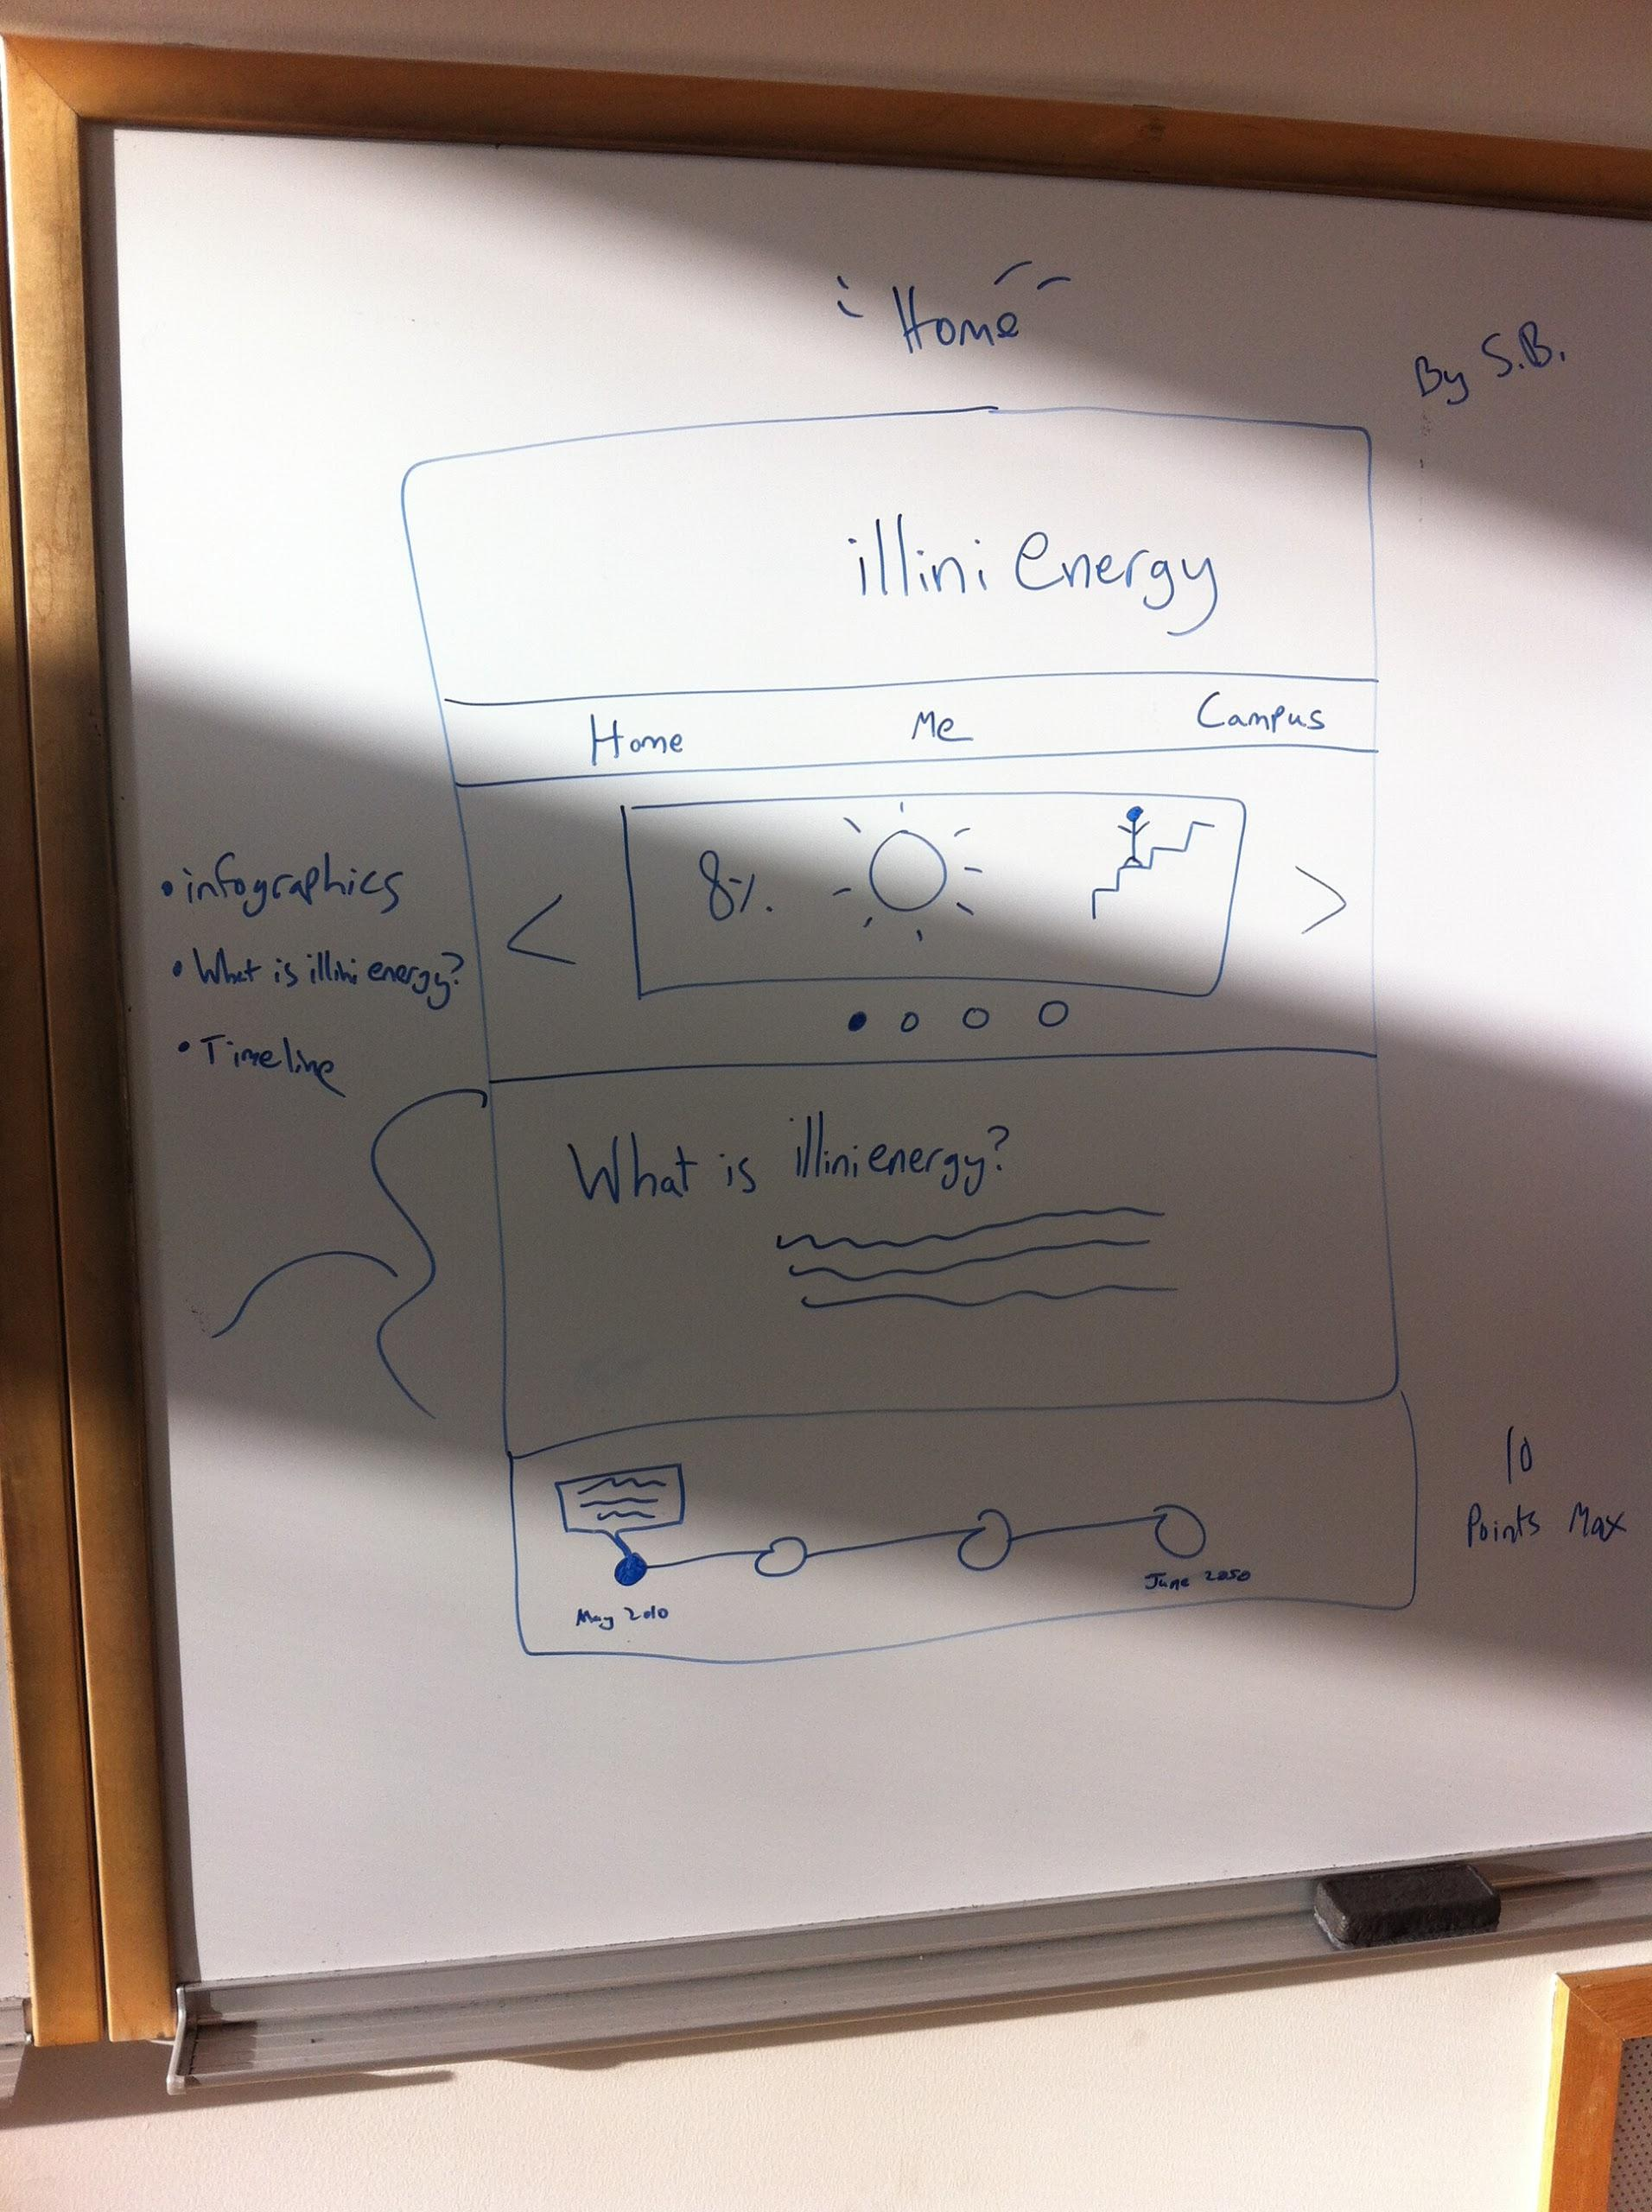 "Home"
By S.B.
illini energy
Home Me Campus
8%
• infographics
• What is illini energy?
• Timeline
< >
What is illinienergy?
10
Points Max
May 2010
June 2050